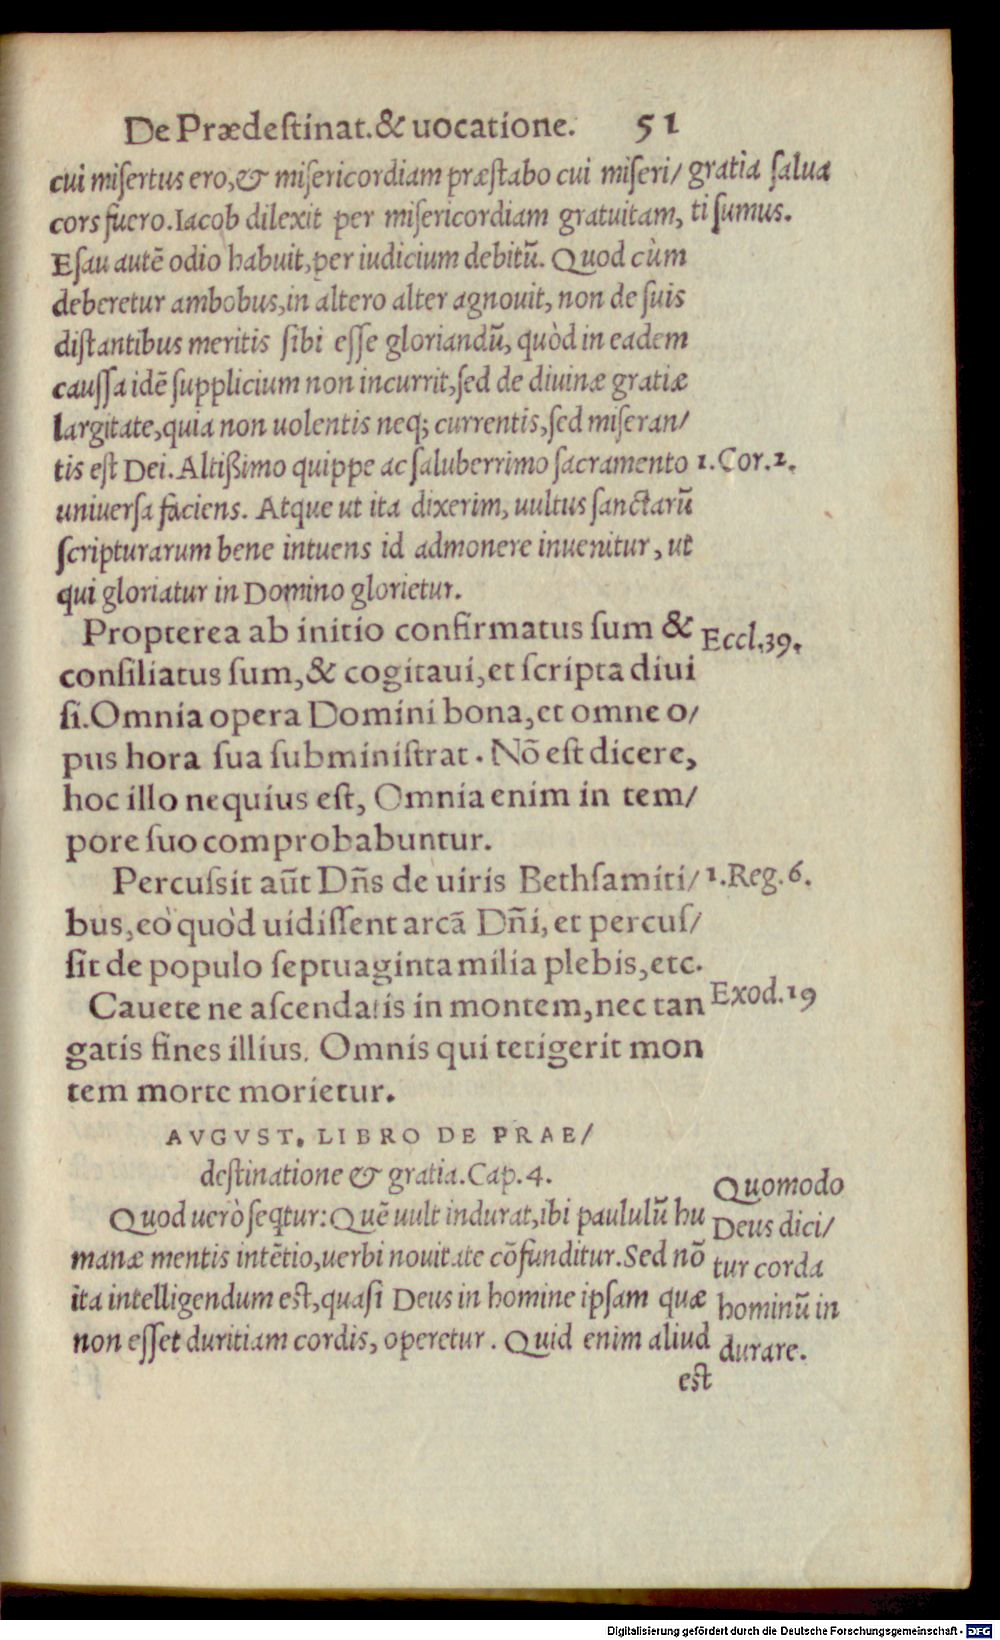 De Prædestinat. & uocatione. 51
cui misertus ero, & misericordiam præstabo cui miseri/
cors fuero. Iacob dilexit per misericordiam gratuitam,
Esau autē odio habuit, per iudicium debitū. Quod cùm
deberetur ambobus, in altero alter agnouit, non de suis
distantibus meritis sibi esse gloriandū, quòd in eadem
caussa idē supplicium non incurrit, sed de diuinæ gratiæ
largitate, quia non uolentis neq; currentis, sed miseran/
tis est Dei. Altißimo quippe ac saluberrimo sacramento
uniuersa faciens. Atque ut ita dixerim, uultus sanctarū
scripturarum bene intuens id admonere inuenitur, ut
qui gloriatur in Domino glorietur.
gratia salua
ti sumus.
1. Cor. 2.
Propterea ab initio confirmatus sum &
consiliatus sum, & cogitaui, et scripta diui
si. Omnia opera Domini bona, et omne o/
pus hora sua subministrat. Nō est dicere,
hoc illo nequius est, Omnia enim in tem/
pore suo comprobabuntur.
Eccl. 39.
Percussit aūt Dñs de uiris Bethsamiti/
bus, eò quòd uidissent arcā Dñi, et percus/
sit de populo septuaginta milia plebis, etc.
1. Reg. 6.
Cauete ne ascendatis in montem, nec tan
gatis fines illius. Omnis qui tetigerit mon
tem morte morietur.
Exod. 19
AVGVST. LIBRO DE PRAE/
destinatione & gratia. Cap. 4.
Quod uerò seqtur: Quē uult indurat, ibi paululū hu
manæ mentis intētio, uerbi nouitate cōfunditur. Sed nō
ita intelligendum est, quasi Deus in homine ipsam quæ
non esset duritiam cordis, operetur. Quid enim aliud
est
Quomodo
Deus dici/
tur corda
hominū in
durare.
Digitalisierung gefördert durch die Deutsche Forschungsgemeinschaft - DFG